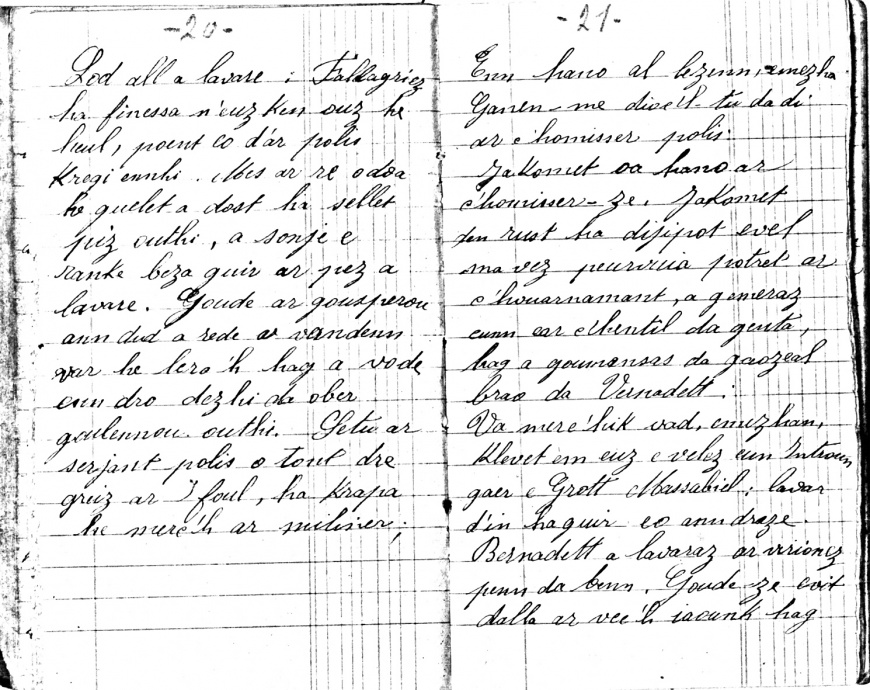 -20-
Lod all a lavare : Fallagriez
ha finessa n'euz ken ouz he
heul, poent eo d'ar polis
Kregi ennhi. Mes ar re odoa
he guelet a dost ha sellet
piz outhi, a sonje e
ranke beza guir ar pez a
lavare. Goude ar gousperou
ann dud a rede a vandenn
var he lerc'h hag a vode
enn dro dezhi da ober
goulennou outhi. Setu ar
serjant polis o tont dre
greiz ar foul, ha krapa
he merc'h ar miliner;
-21-
Enn hano al lezenn, emezha
Ganen-me dioc'h tu da di
ar c'homisser polis.
Jakomet oa hano ar
c'homisser-ze. Jakomet
den rust ha disipot evel
ma vez peurvuia potret ar
c'houarnamant, a gemeraz
eunn ear Mentil da genta,
hag a goumensas da gaozeal
brao da Vernadett :
Va merc'hik vad, emezhan,
Klevet em euz e velez eun Introun
gaer e Grott Massabiel; lavar
d'in ha guir eo ann draze.
Bernadett a lavaraz ar virionez
penn da benn. Goude ze evit
dalla ar verc'h iaounk hag